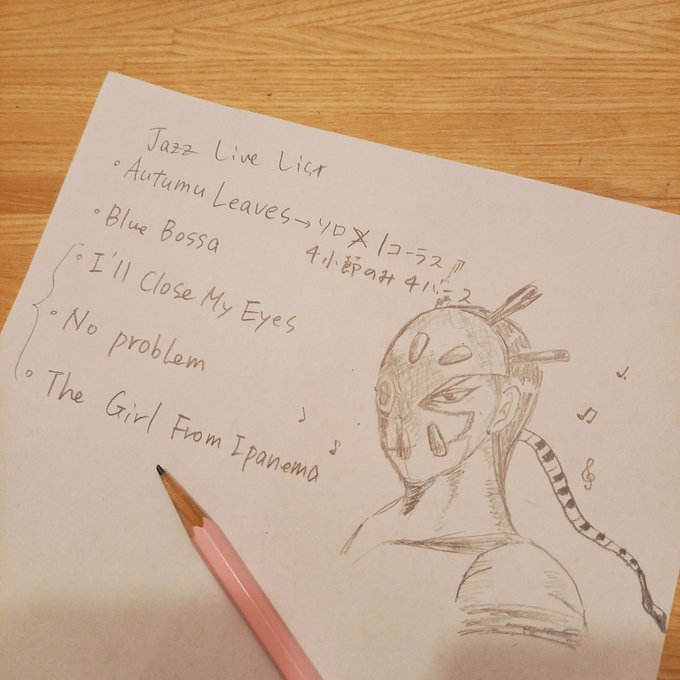 Jazz Live List
• Autumu Leaves → ソロ✗ 1コーラス
4小節のみ 4バース
• Blue Bossa
• I'll Close My Eyes
• No problem
• The Girl From Ipanema